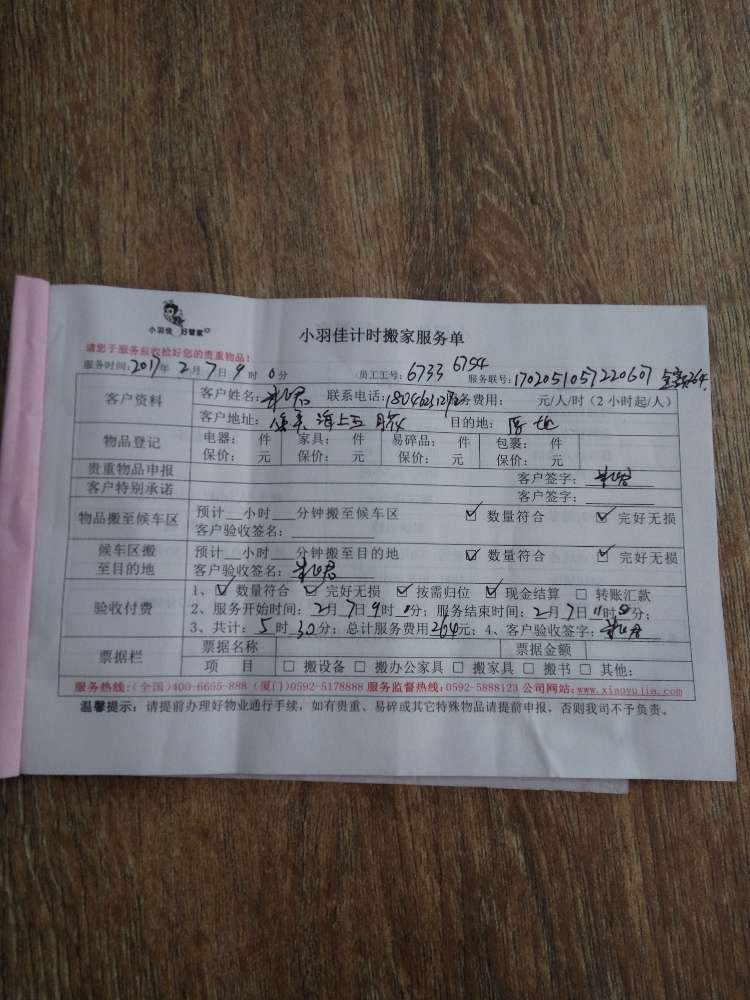 小羽佳 好管家
小羽佳计时搬家服务单
请您于服务前收捡好您的贵重物品!
服务时间:2017年2月7日9时0分 员工工号:6733 6754 服务联号:170205105722060
客户资料 客户姓名: 联系电话: 服务费用: 元/人/时(2小时起/人)
客户地址: 海上五月花 目的地: 原地
物品登记 电器: 件 家具: 件 易碎品: 件 包裹: 件
保价: 元 保价: 元 保价: 元 保价: 元
贵重物品申报 客户签字:
客户特别承诺 客户签字:
物品搬至候车区 预计__小时__分钟搬至候车区 ☑数量符合 ☑完好无损
客户验收签名:
候车区搬至目的地 预计__小时__分钟搬至目的地 ☑数量符合 ☑完好无损
客户验收签名:
验收付费 1、☑数量符合 ☑完好无损 ☑按需归位 ☑现金结算 □转账汇款
2、服务开始时间:2月7日9时 分;服务结束时间:2月7日11时 分;
3、共计:5时30分;总计服务费用264元;4、客户验收签字:
票据栏 票据名称 票据金额
项 目 □搬设备 □搬办公家具 □搬家具 □搬书 □其他:
服务热线:(全国)400-6655-888 (厦门)0592-5178888 服务监督热线:0592-5888123 公司网站:www.xiaoyujia.com
温馨提示:请提前办理好物业通行手续,如有贵重、易碎或其它特殊物品请提前申报,否则我司不予负责。